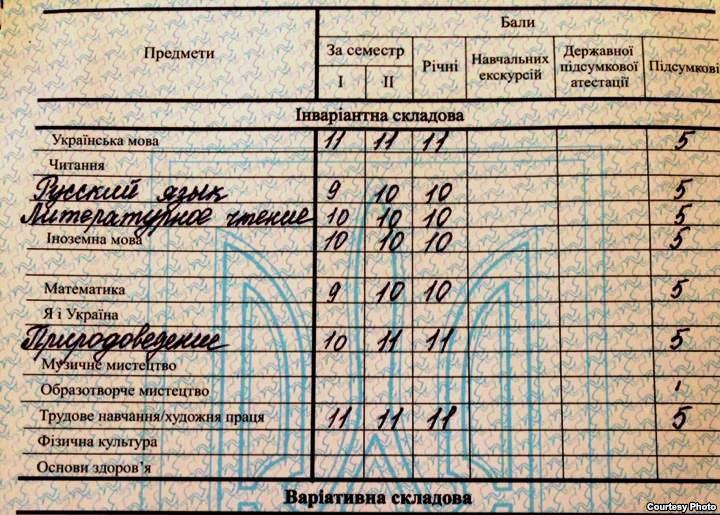 Предмети
Бали
За семестр
Річні
Навчальних екскурсій
Державної підсумкової атестації
Підсумкові
I II
Інваріантна складова
Українська мова 11 11 11 5
Читання
Русский язык 9 10 10 5
Литературное чтение 10 10 10 5
Іноземна мова 10 10 10 5
Математика 9 10 10 5
Я і Україна
Природоведение 10 11 11 5
Музичне мистецтво
Образотворче мистецтво
Трудове навчання/художня праця 11 11 11 5
Фізична культура
Основи здоров'я
Варіативна складова
Courtesy Photo